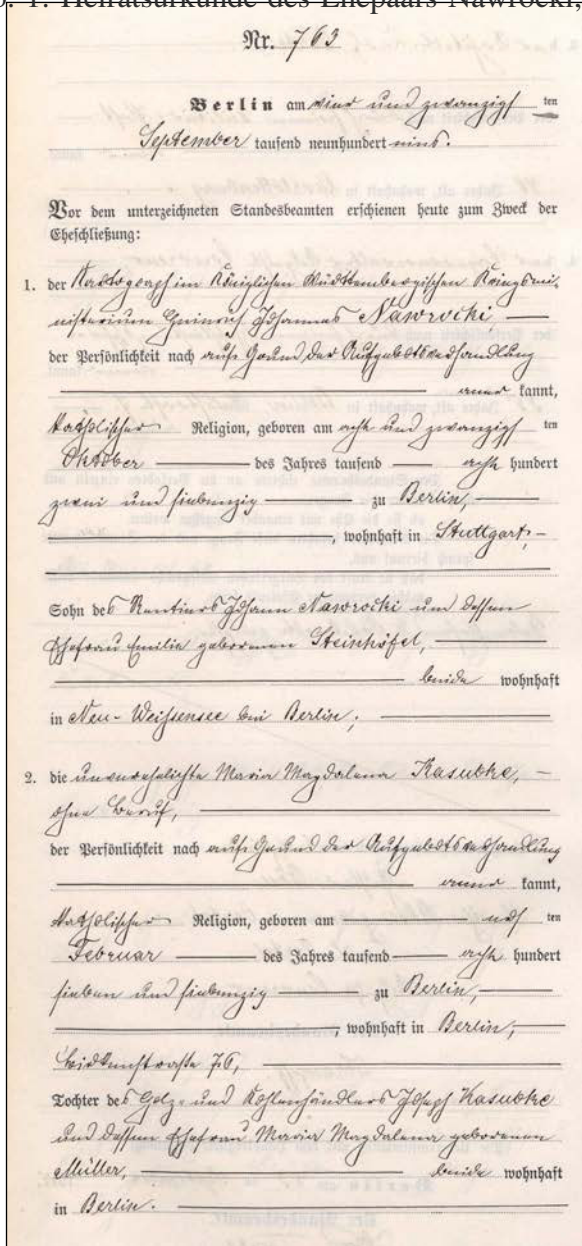 b. 1. Heiratsurkunde des Ehepaars Nawrocki,
Nr. 763
Berlin am vier und zwanzigs ten
September tausend neunhundert eins.
Vor dem unterzeichneten Standesbeamten erschienen heute zum Zweck der
Eheschließung:
1. der Kartograph im Königlichen Württembergischen Kriegsmi-
nisterium Heinrich Johannes Nawrocki
der Persönlichkeit nach auf Grund der Aufgebotsverhandlung
aner kannt,
katholischer Religion, geboren am acht und zwanzigs ten
Oktober des Jahres tausend acht hundert
zwei und siebenzig zu Berlin,
, wohnhaft in Stuttgart,
Sohn des Rentiers Johann Nawrocki und dessen
Ehefrau Emilie geborenen Steinhöfel,
beide wohnhaft
in Neu-Weißensee bei Berlin;
2. die unverehelichte Maria Magdalena Kasubke,
ohne Beruf,
der Persönlichkeit nach auf Grund der Aufgebotsverhandlung
aner kannt,
katholischer Religion, geboren am ten
Februar des Jahres tausend acht hundert
sieben und siebenzig zu Berlin,
, wohnhaft in Berlin,
76,
Tochter des Holz- und Kohlenhändlers Joseph Kasubke
und dessen Ehefrau Maria Magdalena geborenen
Müller, beide wohnhaft
in Berlin.